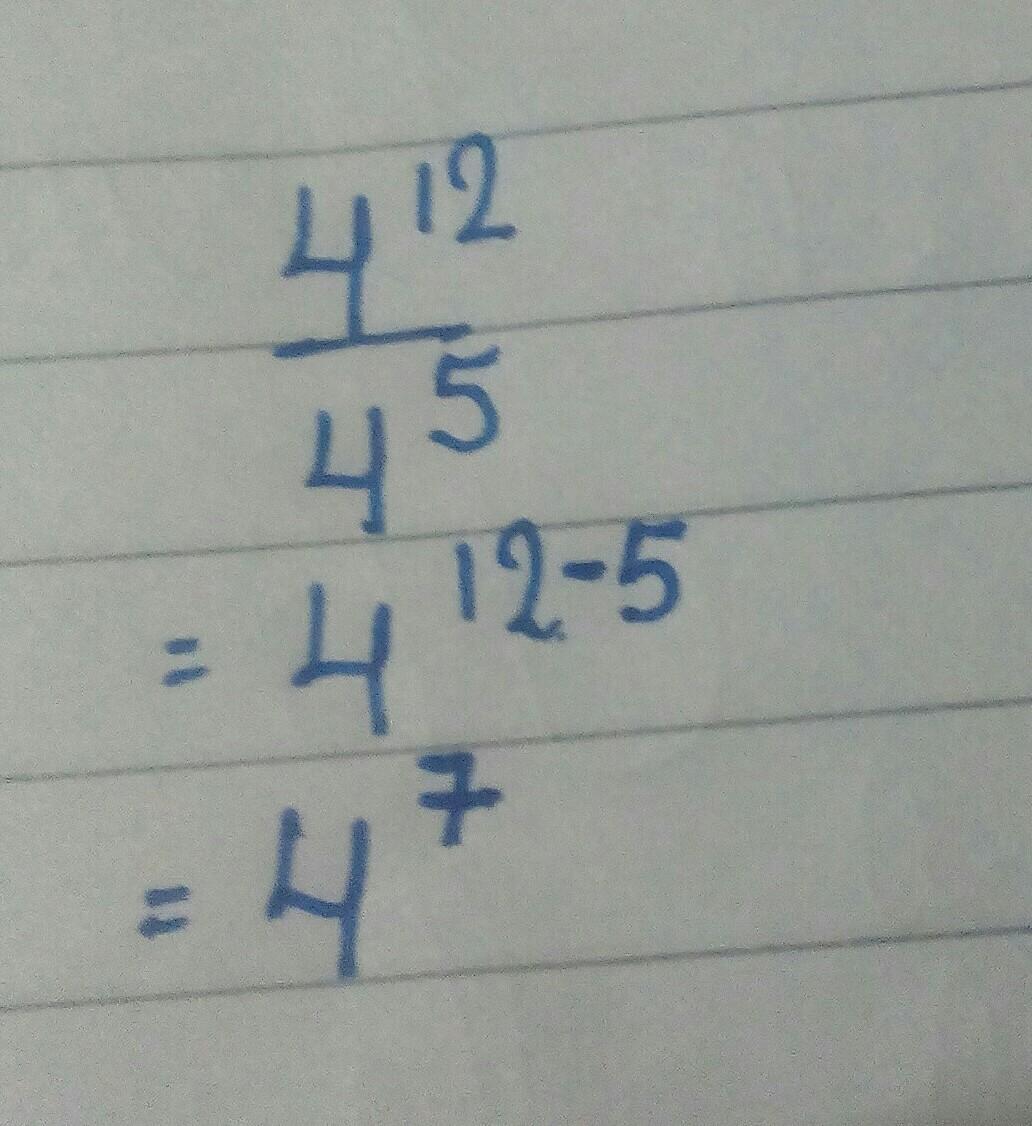 4^12
4^5
= 4^12-5
= 4^7